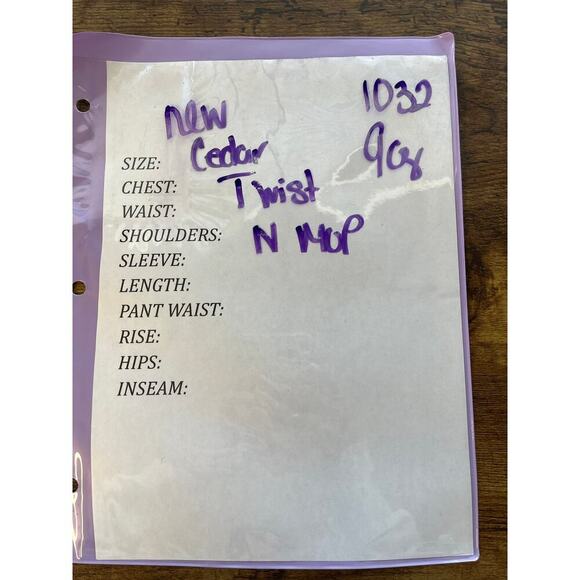 new 1032
Cedar 9oz
Twist
N Mop
SIZE:
CHEST:
WAIST:
SHOULDERS:
SLEEVE:
LENGTH:
PANT WAIST:
RISE:
HIPS:
INSEAM: